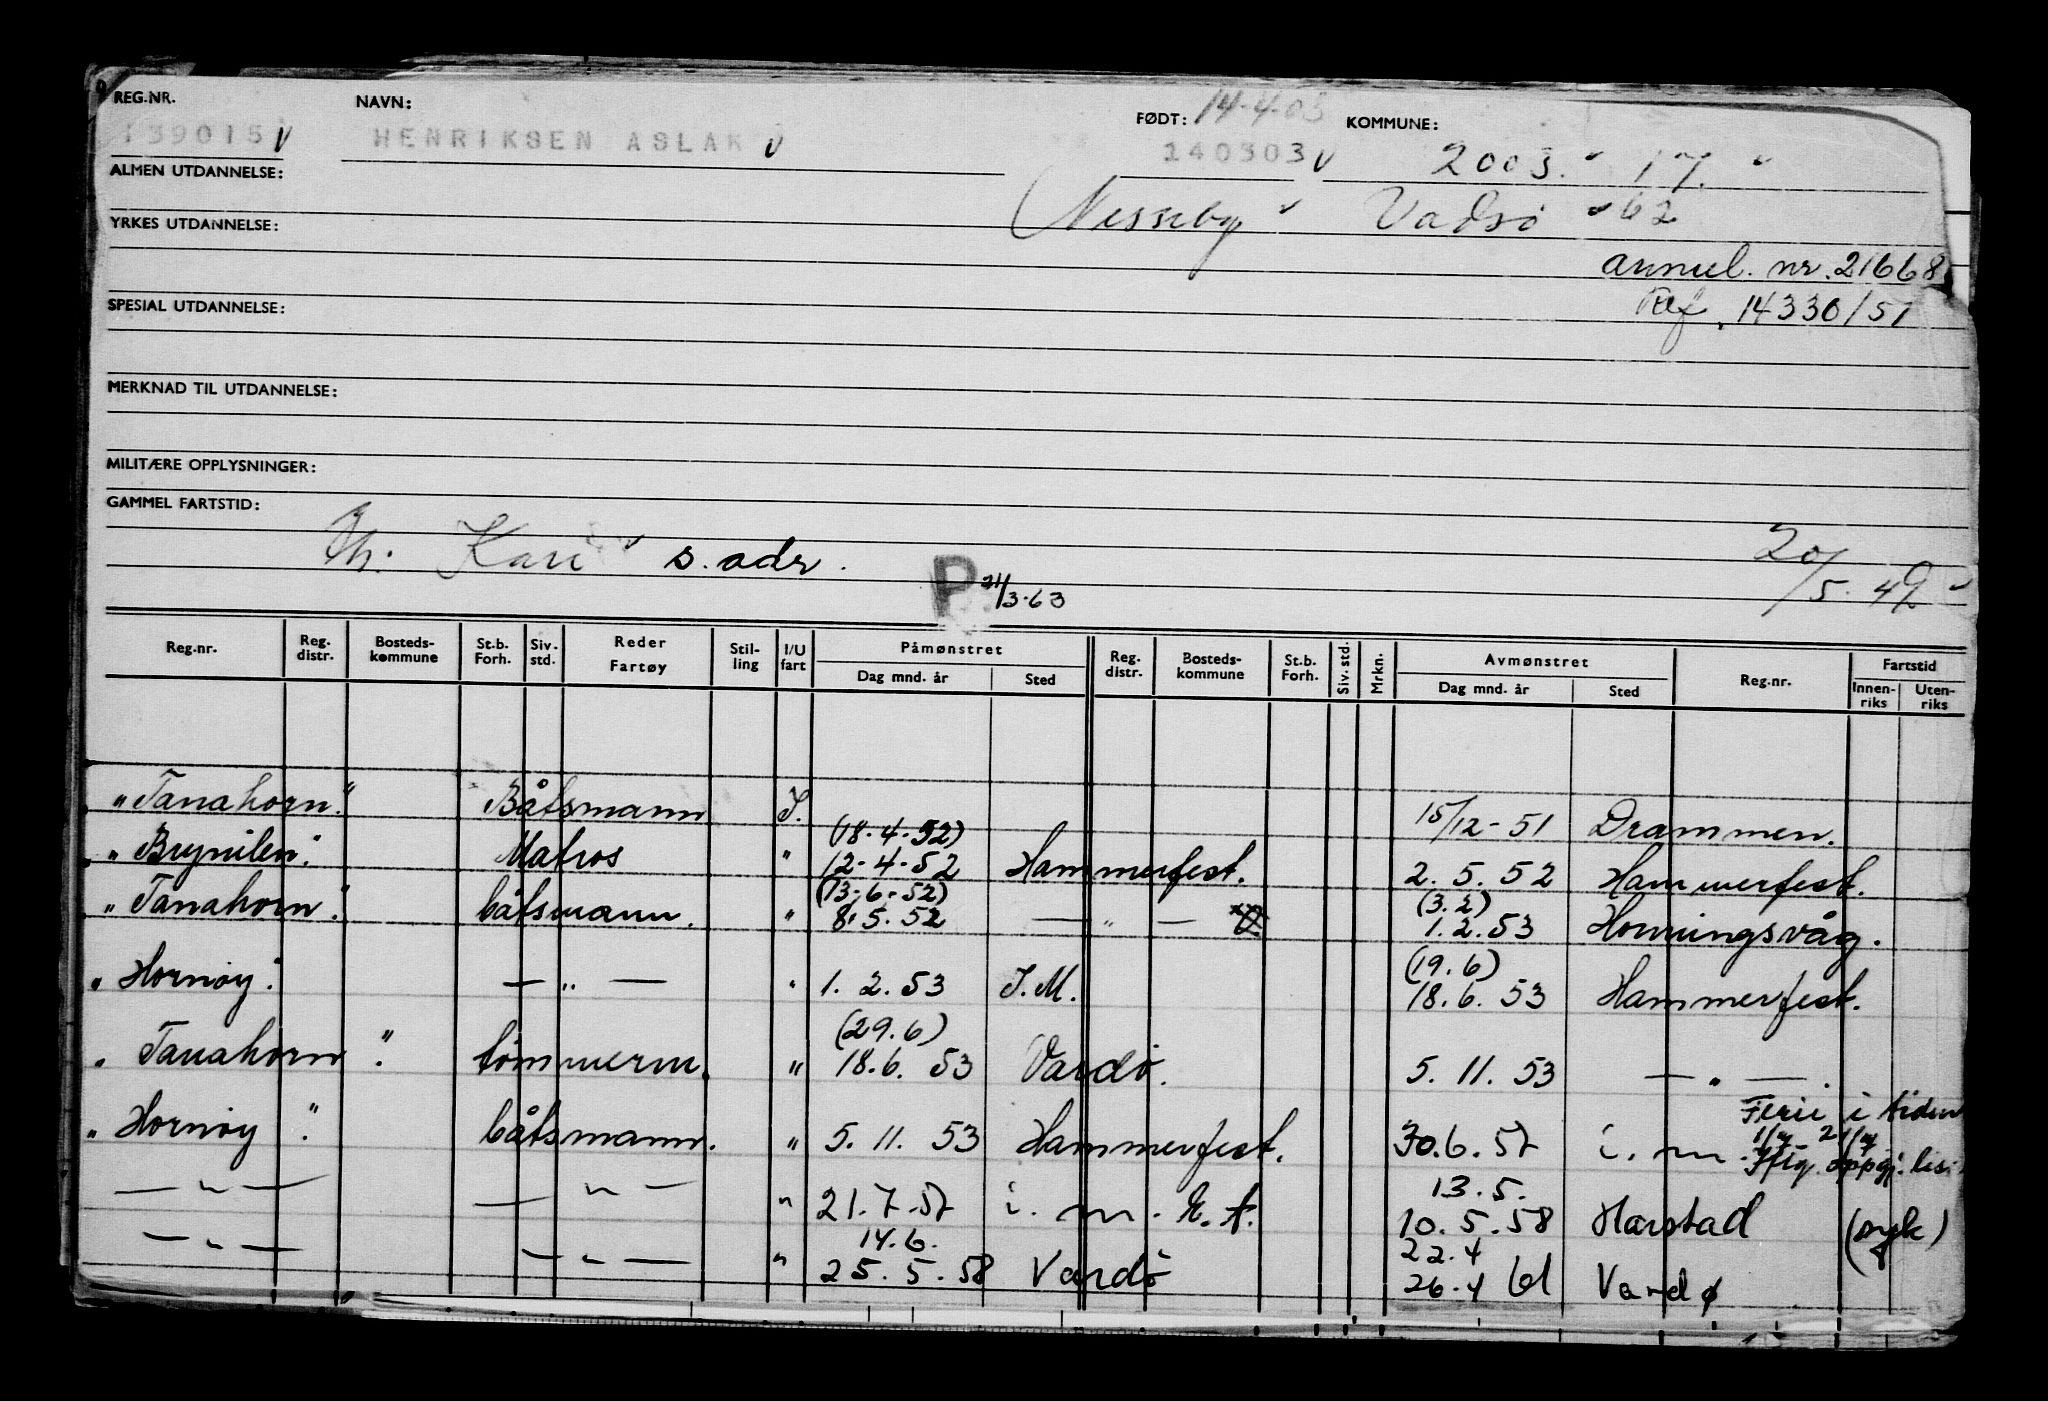 REG.NR. NAVN: FØDT: 14-4-03 KOMMUNE:
139015 v HENRIKSEN ASLAK v 140303 v 2003. 17.
ALMEN UTDANNELSE:
Nesseby Vadsø 62
YRKES UTDANNELSE:
annul. nr. 21668
SPESIAL UTDANNELSE: Ref. 14330/51
MERKNAD TIL UTDANNELSE:
MILITÆRE OPPLYSNINGER:
GAMMEL FARTSTID:
Kari s. adr. 20/5. 49
P 21/3-63
Reg.nr. Reg. distr. Bosteds-kommune St.b. Forh. Siv. std. Reder Fartøy Stil-ling I/U fart Påmønstret Dag mnd. år Sted Reg. distr. Bosteds-kommune St.b. Forh. Siv. std. Mrkn. Avmønstret Dag mnd. år Sted Reg.nr. Fartstid Innen-riks Uten-riks
"Tanahorn." Båtsmann I. 15/12-51 Drammen.
(18-4-52)
"Brynilen." Matros " 12-4-52 Hammerfest. 2. 5. 52 Hammerfest.
(13-6-52) (3.2)
"Tanahorn." båtsmann. " 8.5.52 — " — 1.2.53 Honningsvåg.
(19.6)
"Hornøy." — " — " 1. 2. 53 I.M. 18. 6. 53 Hammerfest.
(29.6)
"Tanahorn" tømmerm. " 18.6. 53 Vardø. 5. 11. 53 — " —.
Ferie i tiden
"Hornøy" båtsmann. " 5. 11. 53 Hammerfest. 30.6.57 i. m.
13.5.
— " — — " — " 21.7.57 i. m. 10.5.58 Harstad (syk)
14.6. 22.4
— " — — " — " 25.5.58 Vardø 26.4 61 Vardø